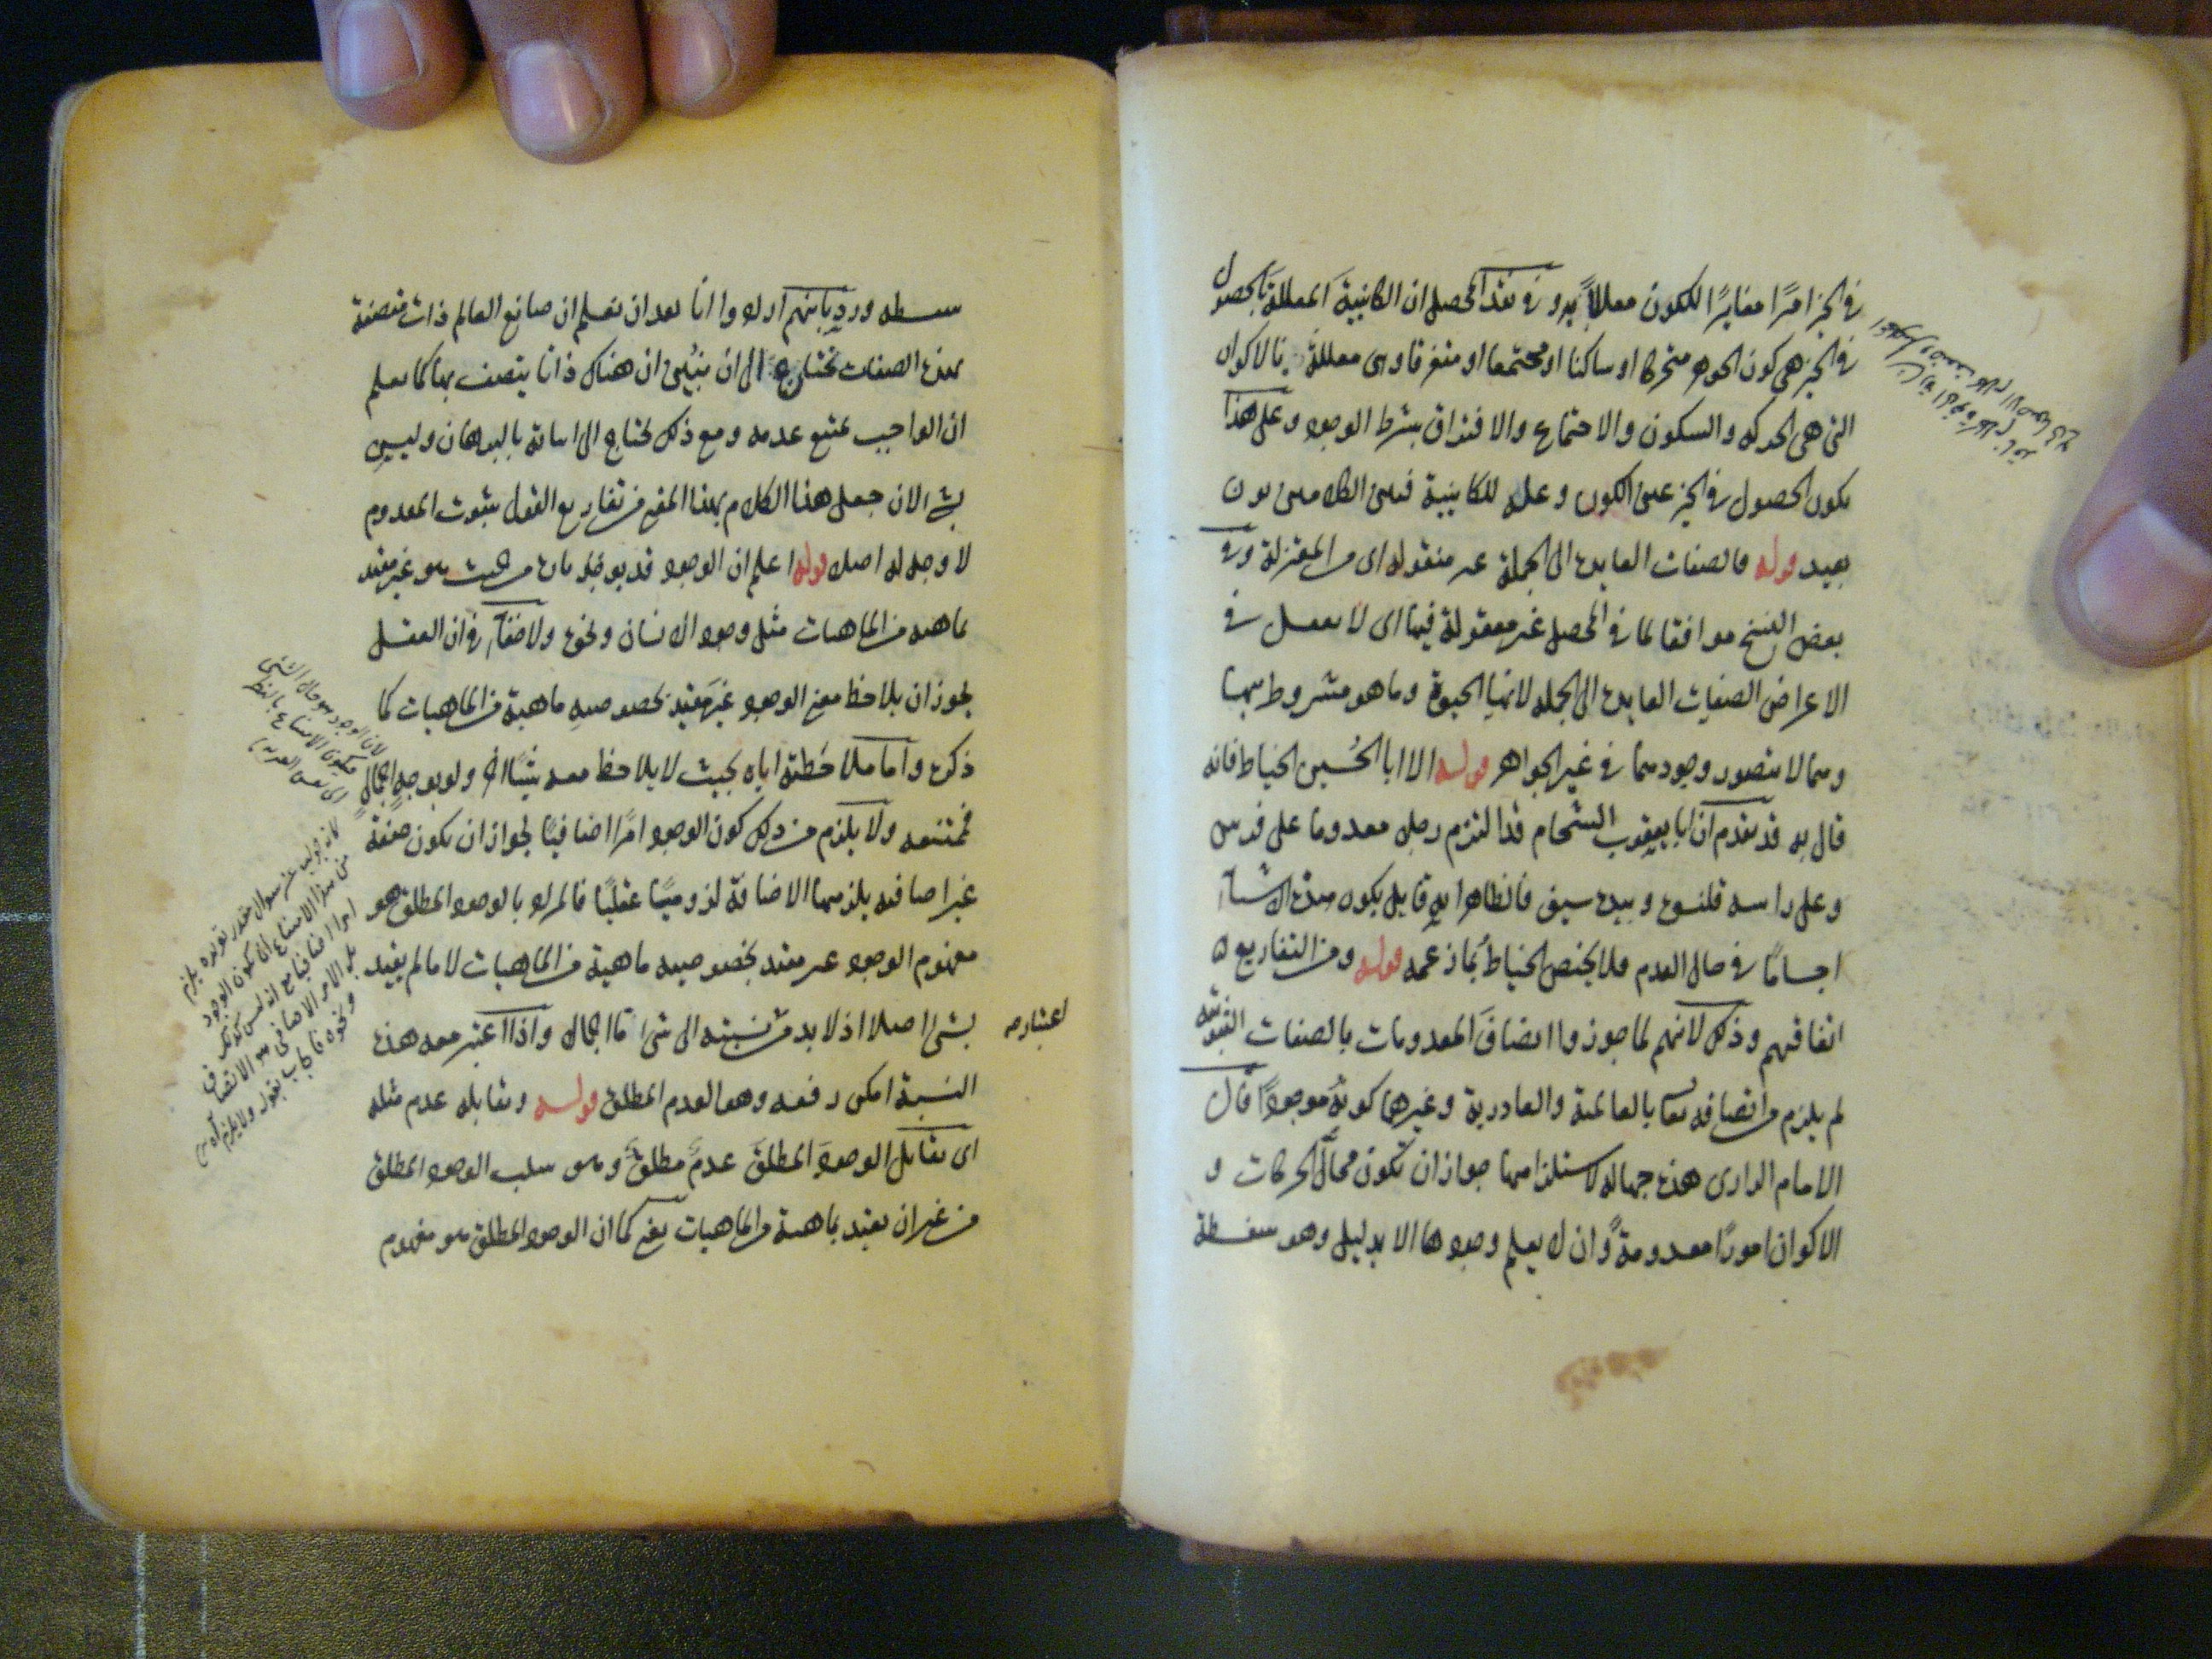 في الحيز امرًا مغايرًا للكون معللاً به وفي نقد المحصل ان الكائنية المعللة بالحصول
في الحيز هي كون الجوهر متحركا او ساكنا او مجتمعا او متفرقا وهي معللة بالاكوان
التي هي الحركة والسكون والاجتماع والافتراق بشرط الوجود وعلى هذا
يكون الحصول في الحيز عين الكون وعلة للكائنية فبين الكلامين بون
بعيد قوله فالصفات العايدة الى الجملة غير منقوله اى من المعتزلة وفي
بعض النسخ موافقا لما في المحصل غير معقولة فيها اى لا يعقل في
الاعراض الصفات العايدة الى الجملة لانها الحيوة وما هو مشروط بها
ومما لا يتصور وجودها في غير الجواهر قوله الا ابا الحُسين الخياط فانه
قال به قد تقدم ان ابا يعقوب الشحام قد التزم رجلا معدوما على فرس
وعلى راسه قلنسوة وبيده سيف فالظاهر انه قايل بكون هذه الاشياء
اجسامًا في حال العدم فلا يختص الخياط بما زعمه قوله ومن التفاريع
اتفاقهم وذلك لانهم لما جوزوا اتصاف المعدومات بالصفات الثبوتية
لم يلزم من اتصافه تعا بالعالمية والقادرية وغيرهما كونه موجودًا قال
الامام الرازى هذه جهالة لاستلزامها جواز ان تكون محالّ الحركات و
الاكوان امورًا معدومة وان لا يعلم وجودها الا بدليل وهو سفسطة
سفسطه ورد بانهم ارادوا انا بعد ان نعلم ان صانع العالم ذات متصفة
بهذه الصفات نحتاج الى ان نبين ان هناك ذاتا يتصف بها كما نعلم
ان الواجب يمتنع عدمه ومع ذلك نحتاج الى اثباته بالبرهان وليس
بشئ لان جعل هذا الكلام بهذا المعنى من تفاريع القول بثبوت المعدوم
لا وجه له اصلا قوله اعلم ان الوجود قد يوخذ تارة من حيث هو غير مقيد
بماهيه من الماهيات مثل وجود الانسان ونحوه ولا خفاء في ان العقل
يجوز ان يلاحظ معنى الوجود غير مقيد بخصوصيه ماهية من الماهيات كما
ذكره واما ملاحظته اياه بحيث لا يلاحظ معه شيئا اخر ولو بوجه اجمالي
فممتنعه ولا يلزم من ذلك كون الوجود امرًا اضافيًا لجواز ان يكون صفة
غير اضافيه يلزمها الاضافة لزوميًا عقليًا فالمراد بالوجود المطلق هو
مفهوم الوجود غير مقيد بخصوصيه ماهية من الماهيات لا ما لم يقيد
بشئ اصلا اذ لا بد من نسبته الى شئ ما اجمالا واذا اعتبر معه هذه
اعتباره
النسبة امكن رفعه وهو العدم المطلق قوله ويقابله عدم مثله
اى يقابل الوجود المطلق عدم مطلق وهو سلب الوجود المطلق
من غير ان يقيد بماهية من الماهيات يعنى كما ان الوجود المطلق هو مفهوم
لان الوجود هو حال الشئ
فيكون الامتناع بالنظر
كانه جواب عن سوال مقدر تقريره يلزم
من هذا الامتناع ان يكون الوجود
امرا اضافيا مع انه ليس كذلك
بل الامر الاضافي هو الاتصاف
ونحوه فاجاب بقوله ولا يلزم